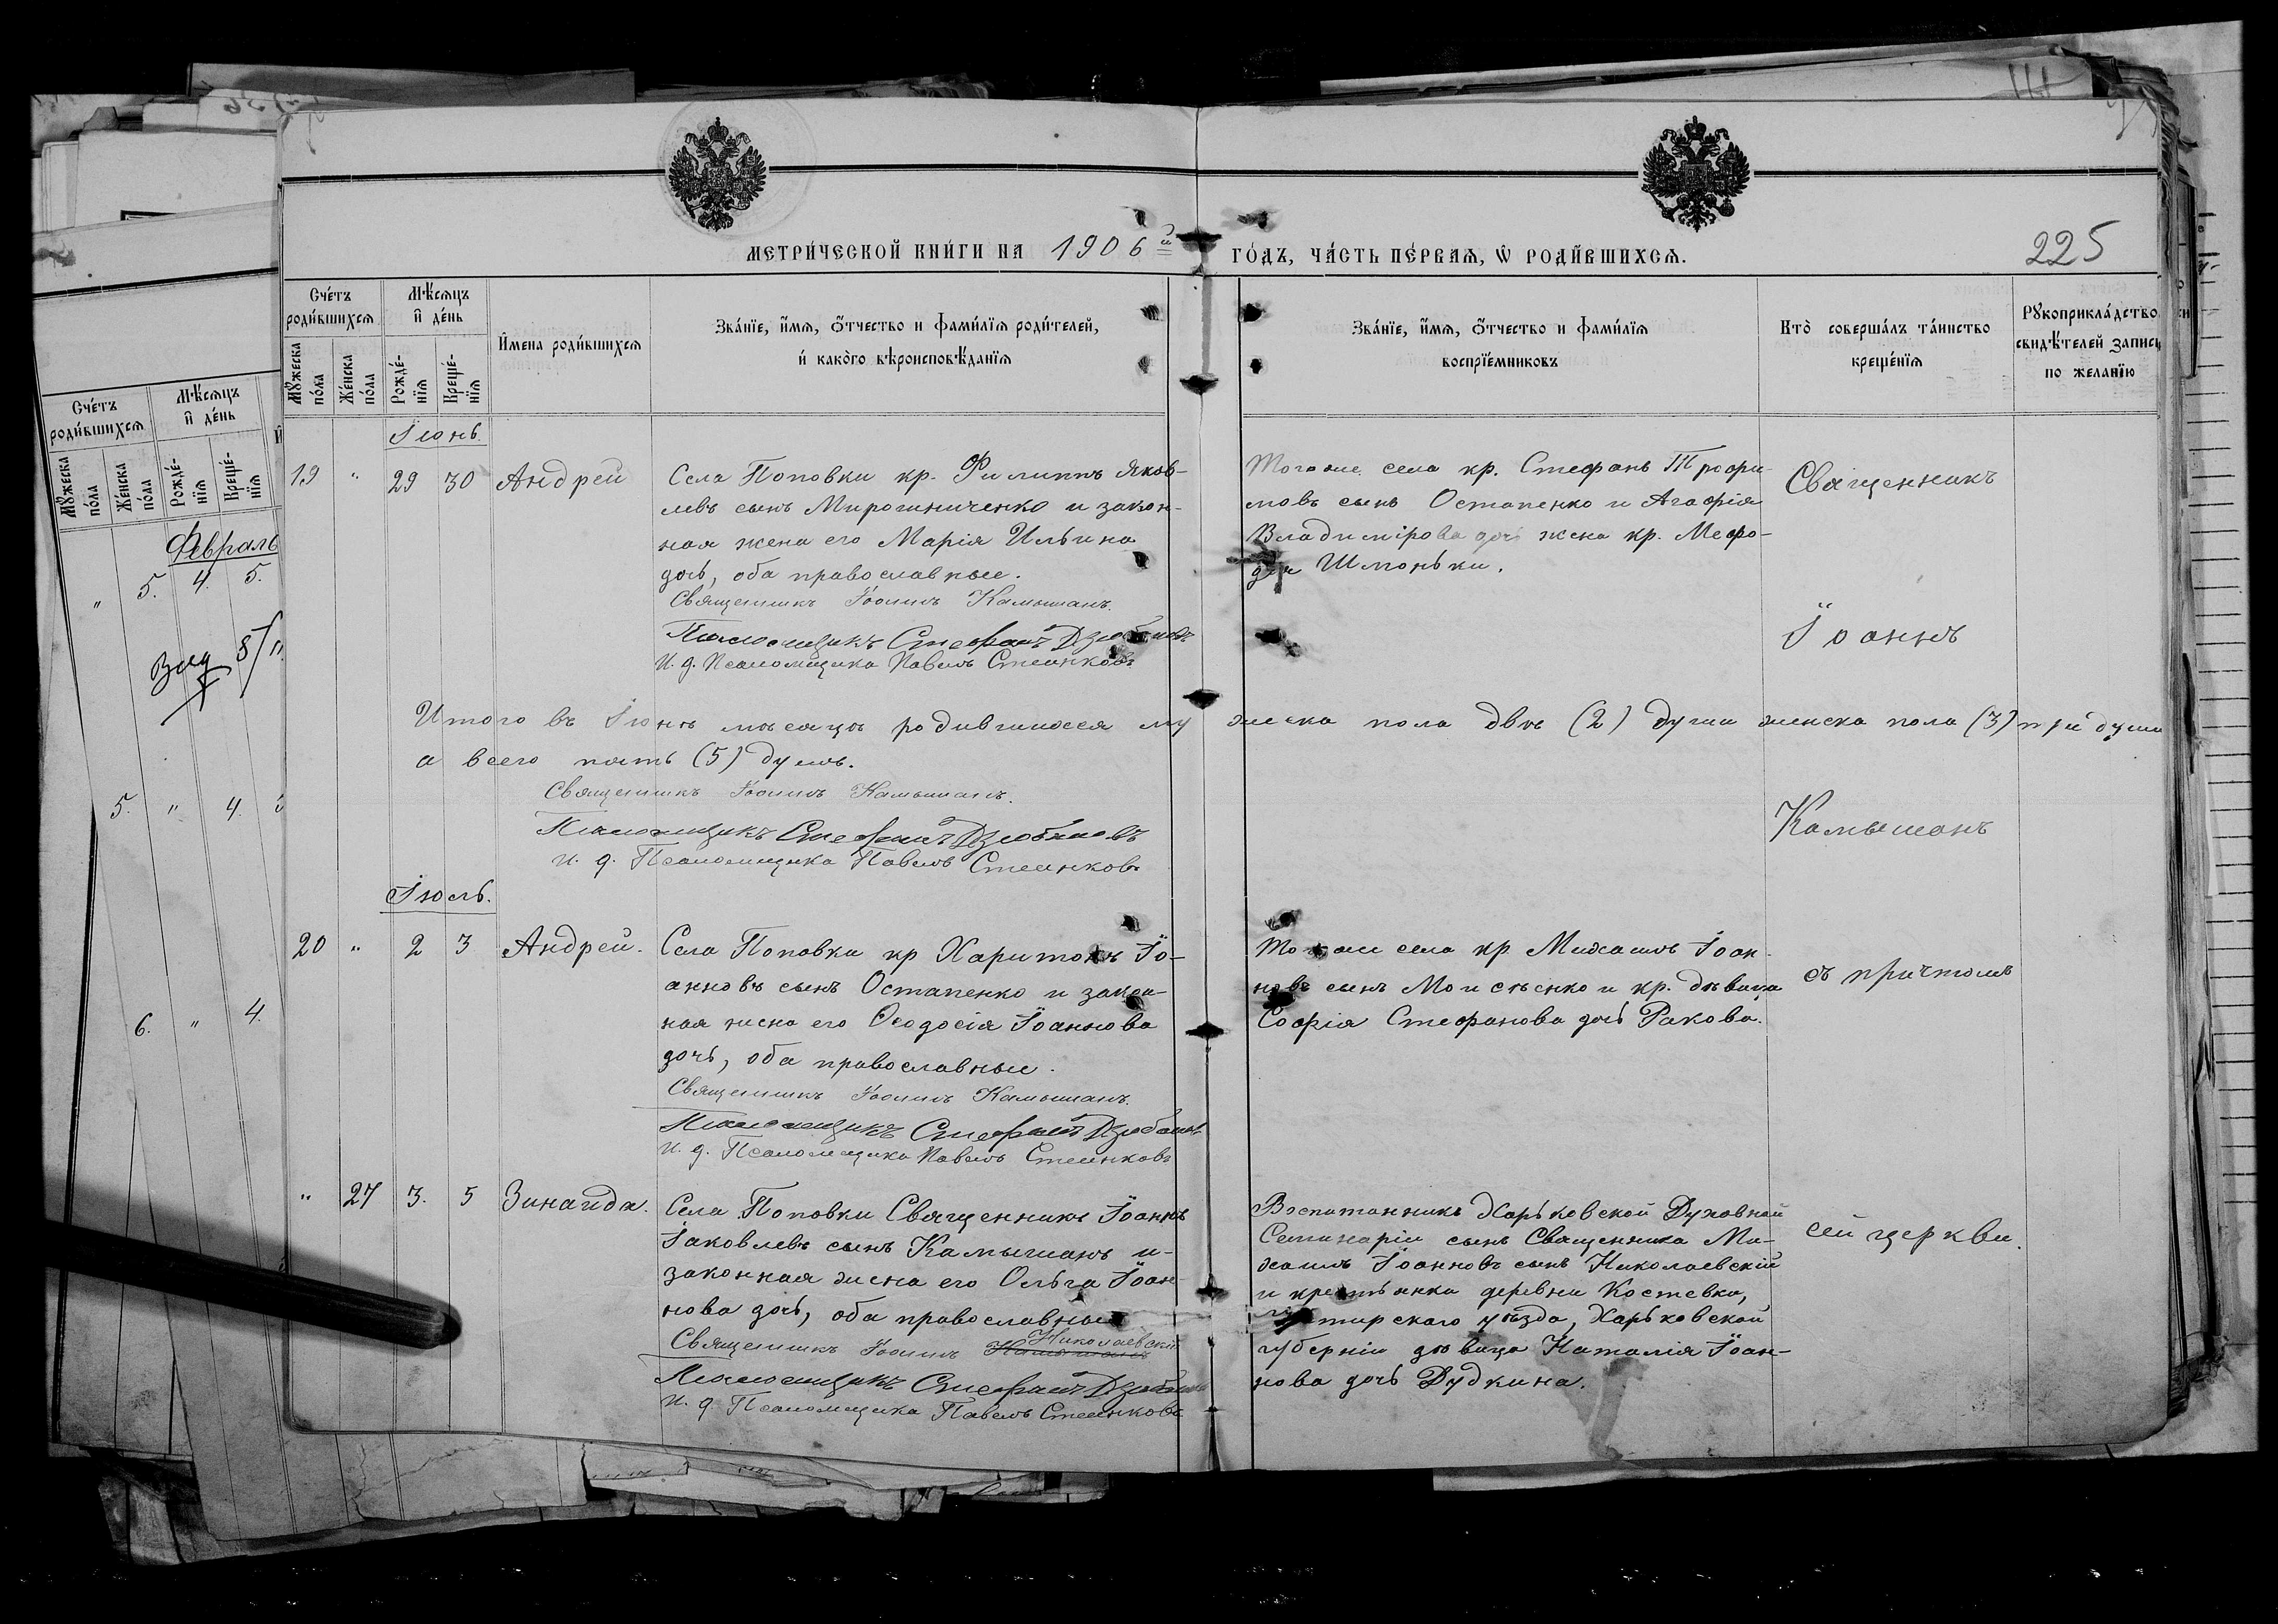 МЕТРИ́ЧЕСКОЙ КНИ́ГИ НА 1906й ГО́ДЪ, ЧА́СТЬ ПЕ́РВАѦ, Ѡ РОДИ́ВШИХСѦ.
225
Сче́тъ роди́вшихсѧ
Мѣ́сѧцъ и де́нь
Мꙋжеска по́ла
Же́нска по́ла
Рожде́нїѧ
Креще́нїѧ
И́мена роди́вшихсѧ
Зва́нїе, и́мѧ, о́тчество и фами́лїѧ роди́телей,
и како́го вѣроисповѣ́данїѧ
Зва́нїе, и́мѧ, о́тчество и фами́лїѧ
воспрїе́мниковъ
Кто̀ соверша́лъ та́инство
креще́нїѧ
Рꙋкоприкла́дство
свидѣ́телей записи
по жела́нїю
Іюнь.
19 " 29 30 Андрей
Села Поповки кр. Филиппъ Яков-
левъ сынъ Мирошниченко и закон-
ная жена его Марія Ильина
дочь, оба православные.
Священникъ Іоаннъ Камышанъ.
Псаломщикъ Стефанъ Дзюбановъ
И. д. Псаломщика Павелъ
Тогоже села кр. Стефанъ Трофи-
мовъ сынъ Остапенко и Агафія
Владимірова дочь жена кр. Мефо-
дія Шмоньки.
Священникъ
Іоаннъ
Камышанъ
съ причтомъ
сей церкви.
Итого въ Іюнѣ мѣсяцѣ родившихся му жеска пола двѣ (2) души женска пола (3) три души
а всего пять (5) душъ.
Священникъ Іоаннъ Камышанъ.
Псаломщикъ Стефанъ Дзюбановъ
И. д. Псаломщика Павелъ
Іюль.
20 " 2 3 Андрей.
Села Поповки кр Харитонъ Іо-
анновъ сынъ Остапенко и закон-
ная жена его Ѳеодосія Іоаннова
дочь, оба православные.
Священникъ Іоаннъ Камышанъ.
Псаломщикъ Стефанъ Дзюбановъ
И. д. Псаломщика Павелъ
Тогоже села кр. Михаилъ Іоан-
новъ сынъ Моисѣенко и кр. дѣвица
Софія Стефанова дочь Ракова.
" 27 3. 5 Зинаида.
Села Поповки Священникъ Іоаннъ
Іаковлевъ сынъ Камышанъ и-
законная жена его Ольга Іоан-
нова дочь, оба православные
Николаевскій
Священникъ Іоаннъ Камышанъ
Псаломщикъ Стефанъ Дзюбановъ
И. д. Псаломщика Павелъ
Воспитанникъ Харьковской Духовной
Семинаріи сынъ Священника Ми-
хаилъ Іоанновъ сынъ Николаевскій
и крестьянка деревни Костевки,
уѣзда, Харьковской
губерніи дѣвица Наталія Іоан-
нова дочь Дудкина.
Сче́тъ роди́вшихсѧ
Мѣ́сѧцъ и де́нь
Мꙋжеска по́ла
Же́нска по́ла
Рожде́нїѧ
Креще́нїѧ
Февраль
" 5. 4. 5.
5. " 4.
6. " 4.